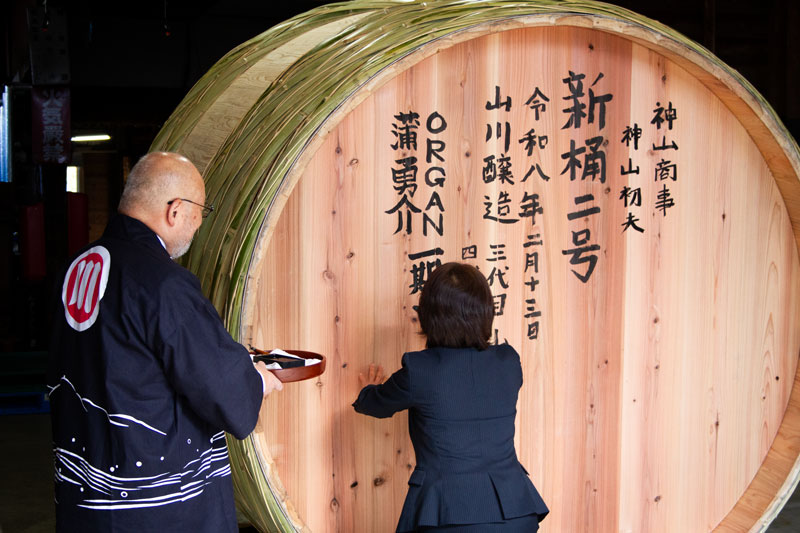 神山商事
神山
新桶二号
令和八年二月十三日
山川醸造 三代目 山
四
ORGAN 一期
蒲勇介